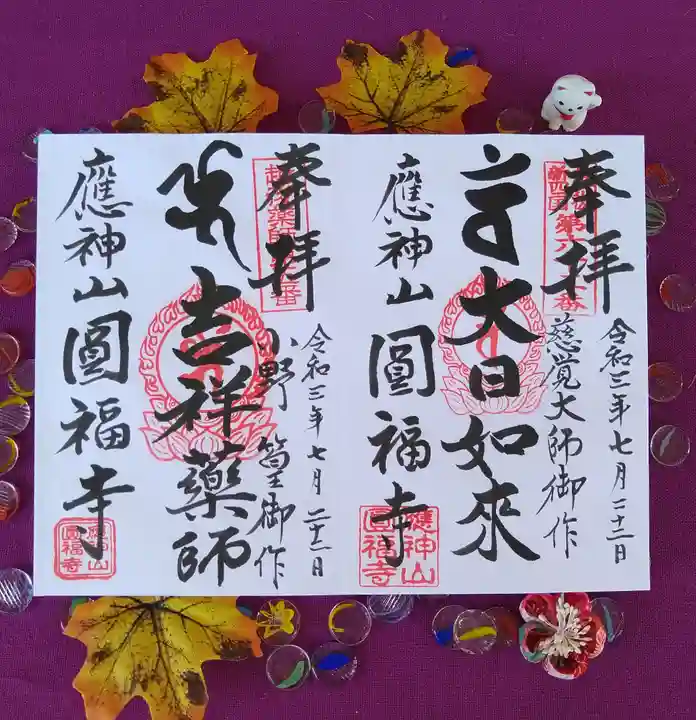 奉拝
令和三年七月二十二日
慈覚大師御作
大日如來
應神山圓福寺
應神山
圓福寺
奉拝
令和三年七月二十二日
小野篁御作
吉祥藥師
應神山圓福寺
應神山
圓福寺